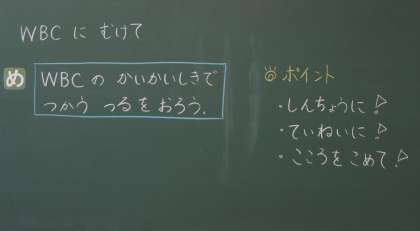 WBC に むけて
め
WBC の かいかいしきで
つかう つるを おろう.
ポイント
・しんちょうに!
・ていねいに!
・こころを こめて!